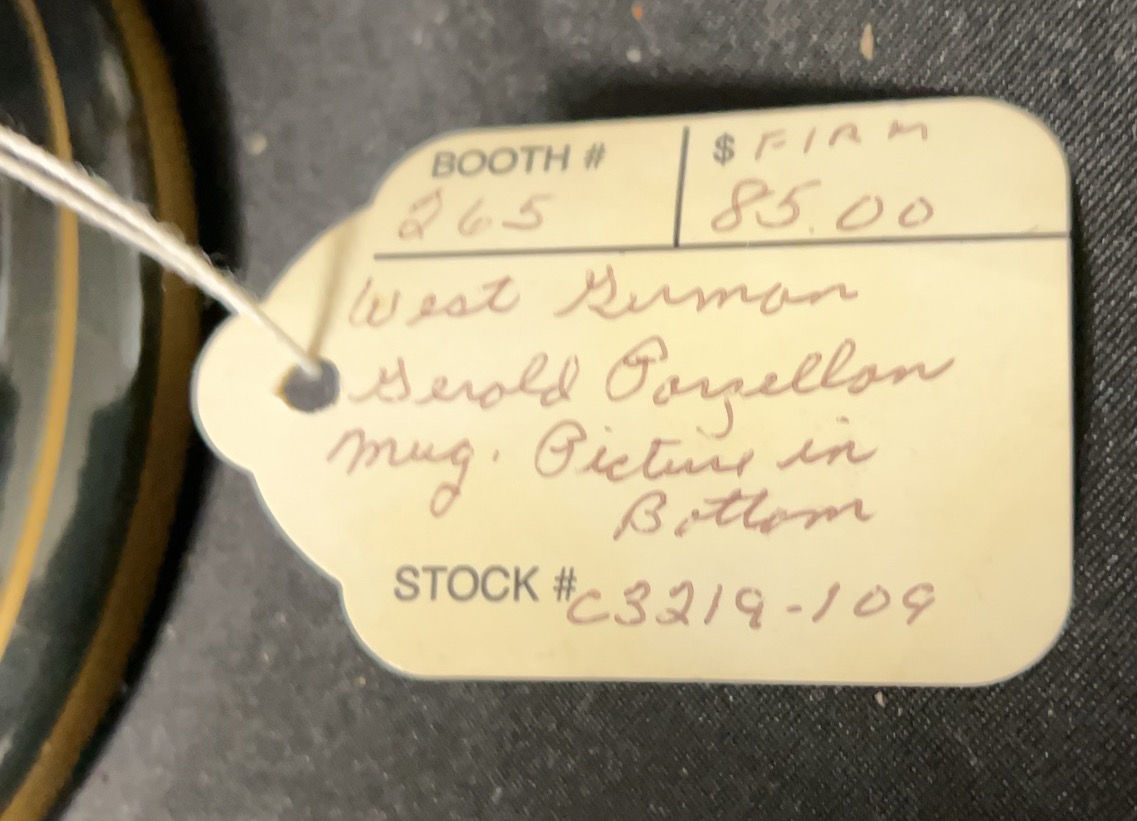 BOOTH # $ FIRM
265 85.00
West German
Gerold Porzellan
Mug. Picture in
Bottom
STOCK # C3219-109